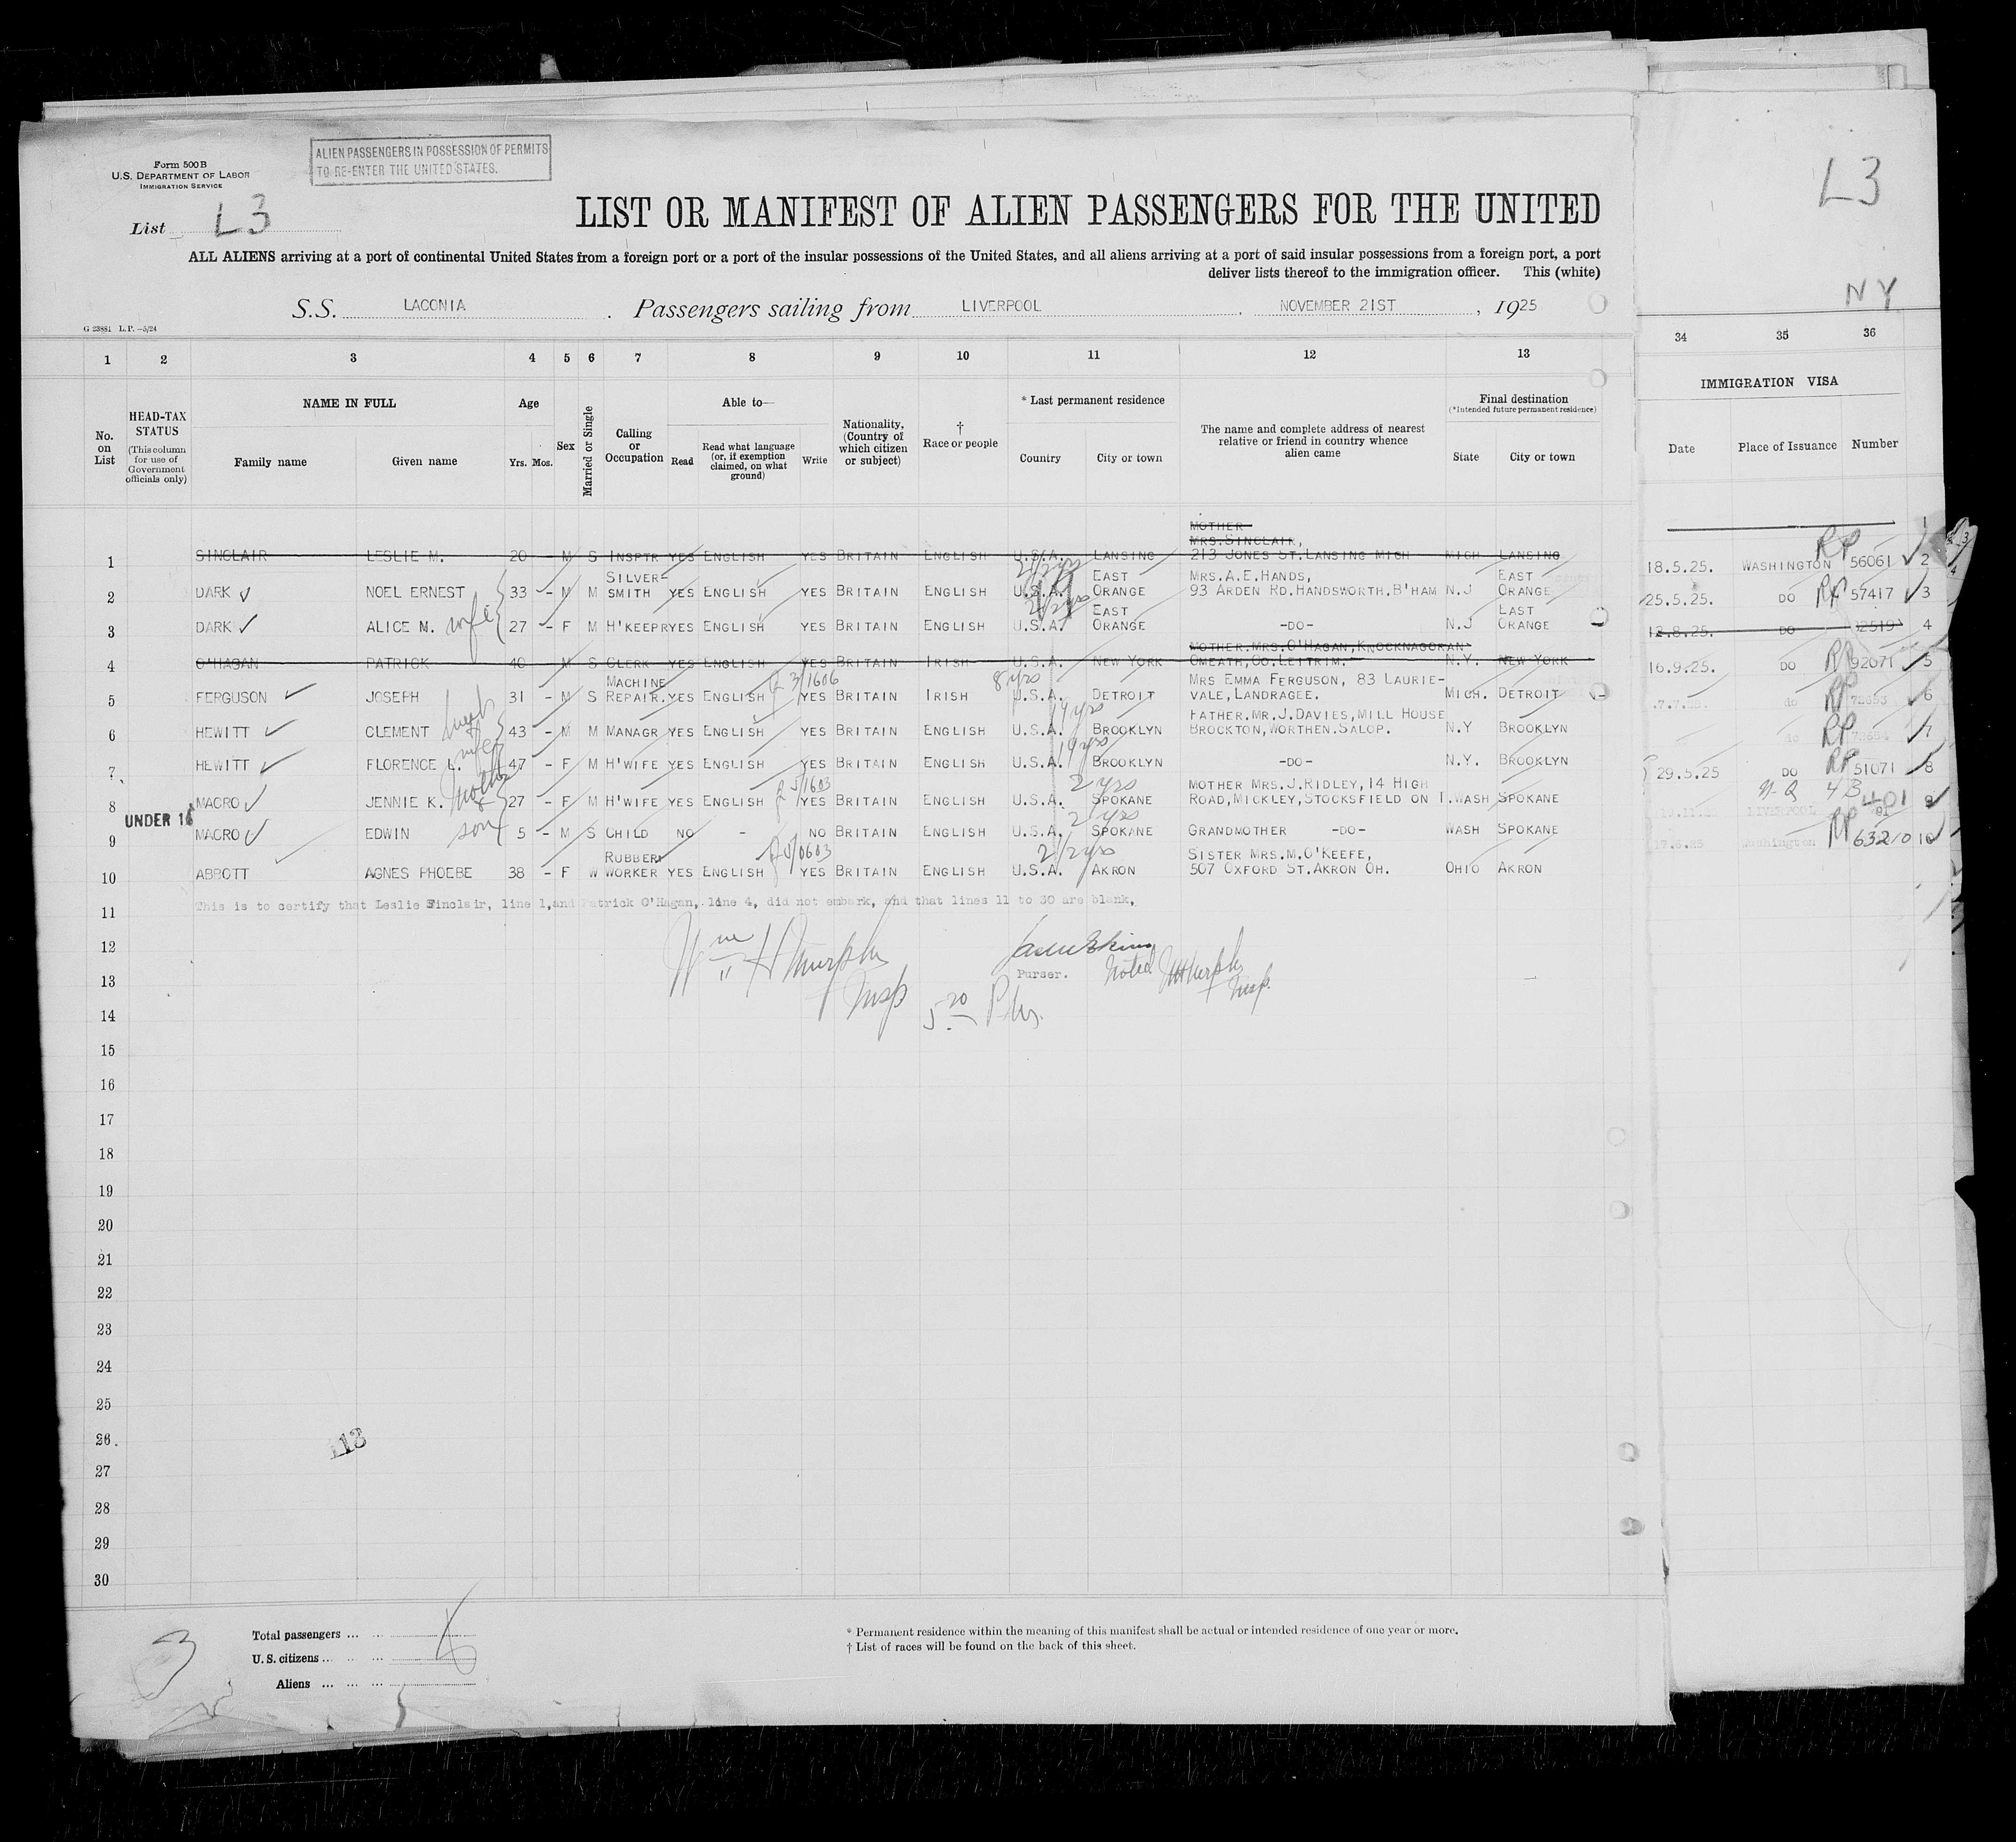 Form 500 B
U.S. DEPARTMENT OF LABOR
IMMIGRATION SERVICE
ALIEN PASSENGERS IN POSSESSION OF PERMITS
TO RE-ENTER THE UNITED STATES.
List L3
LIST OR MANIFEST OF ALIEN PASSENGERS FOR THE UNITED
ALL ALIENS arriving at a port of continental United States from a foreign port or a port of the insular possessions of the United States, and all aliens arriving at a port of said insular possessions from a foreign port, a port
deliver lists thereof to the immigration officer. This (white)
S.S. LACONIA. Passengers sailing from LIVERPOOL, NOVEMBER 21ST, 1925
G 23881 L.P. -5/24
L3
NY
1 2 3 4 5 6 7 8 9 10 11 12 13
34 35 36
No. on List
HEAD-TAX STATUS
(This column for use of Government officials only)
NAME IN FULL
Family name Given name
Age
Yrs. Mos.
Sex
Married or Single
Calling or Occupation
Able to—
Read
Read what language (or, if exemption claimed, on what ground)
Write
Nationality, (Country of which citizen or subject)
† Race or people
* Last permanent residence
Country City or town
The name and complete address of nearest relative or friend in country whence alien came
Final destination
(*Intended future permanent residence)
State City or town
IMMIGRATION VISA
Date Place of Issuance Number
MOTHER
MRS. SINCLAIR,
1 SINCLAIR LESLIE M. 20 - M S INSPTR YES ENGLISH YES BRITAIN ENGLISH U.S.A. LANSING 213 JONES ST. LANSING MICH MICH LANSING
SILVER- EAST MRS. A.E. HANDS, EAST
2 DARK NOEL ERNEST 33 - M M SMITH YES ENGLISH YES BRITAIN ENGLISH U.S.A. ORANGE 93 ARDEN RD. HANDSWORTH. B'HAM N.J ORANGE
EAST EAST
3 DARK ALICE M. wife 27 - F M H'KEEPR YES ENGLISH YES BRITAIN ENGLISH U.S.A. ORANGE -DO- N.J ORANGE
MOTHER, MRS. O'HAGAN, KNOCKNAGORAN
4 O'HAGAN PATRICK 40 - M S CLERK YES ENGLISH YES BRITAIN IRISH U.S.A. NEW YORK OMEATH, CO. LEITRIM. N.Y. NEW YORK
MACHINE 3/1606 8 yrs MRS EMMA FERGUSON, 83 LAURIE-
5 FERGUSON JOSEPH 31 - M S REPAIR. YES ENGLISH YES BRITAIN IRISH U.S.A. DETROIT VALE, LANDRAGEE. MICH. DETROIT
FATHER. MR. J. DAVIES, MILL HOUSE
6 HEWITT CLEMENT 43 - M M MANAGR YES ENGLISH YES BRITAIN ENGLISH U.S.A. BROOKLYN BROCKTON, WORTHEN. SALOP. N.Y BROOKLYN
7 HEWITT FLORENCE L. wife 47 - F M H'WIFE YES ENGLISH YES BRITAIN ENGLISH U.S.A. BROOKLYN -DO- N.Y. BROOKLYN
2 yrs MOTHER MRS. J. RIDLEY, 14 HIGH
8 MACRO JENNIE K. 27 - F M H'WIFE YES ENGLISH YES BRITAIN ENGLISH U.S.A. SPOKANE ROAD, MICKLEY, STOCKSFIELD ON T. WASH SPOKANE
UNDER 16
2 yrs
9 MACRO EDWIN son 5 - M S CHILD NO - NO BRITAIN ENGLISH U.S.A. SPOKANE GRANDMOTHER -DO- WASH SPOKANE
RUBBER 2 1/2 yrs SISTER MRS. M. O'KEEFE,
10 ABBOTT AGNES PHOEBE 38 - F W WORKER YES ENGLISH YES BRITAIN ENGLISH U.S.A. AKRON 507 OXFORD ST. AKRON OH. OHIO AKRON
1
18.5.25. WASHINGTON RP 56061 2
25.5.25. DO RP 57417 3
12.8.25. DO 4
16.9.25. DO RP 92071 5
do RP 72653 6
do RP 72654 7
29.5.25 DO RP 51071 8
LIVERPOOL 401 9
17.6.25 Washington RP 63210 10
11 This is to certify that Leslie Sinclair, line 1, and Patrick O'Hagan, line 4, did not embark, and that lines 11 to 30 are blank,
12 Wm H Murphy
13 Insp Purser. Noted Murphy Insp.
14
15
16
17
18
19
20
21
22
23
24
25
26
27
28
29
30
113
3
Total passengers
U.S. citizens
Aliens
* Permanent residence within the meaning of this manifest shall be actual or intended residence of one year or more.
† List of races will be found on the back of this sheet.